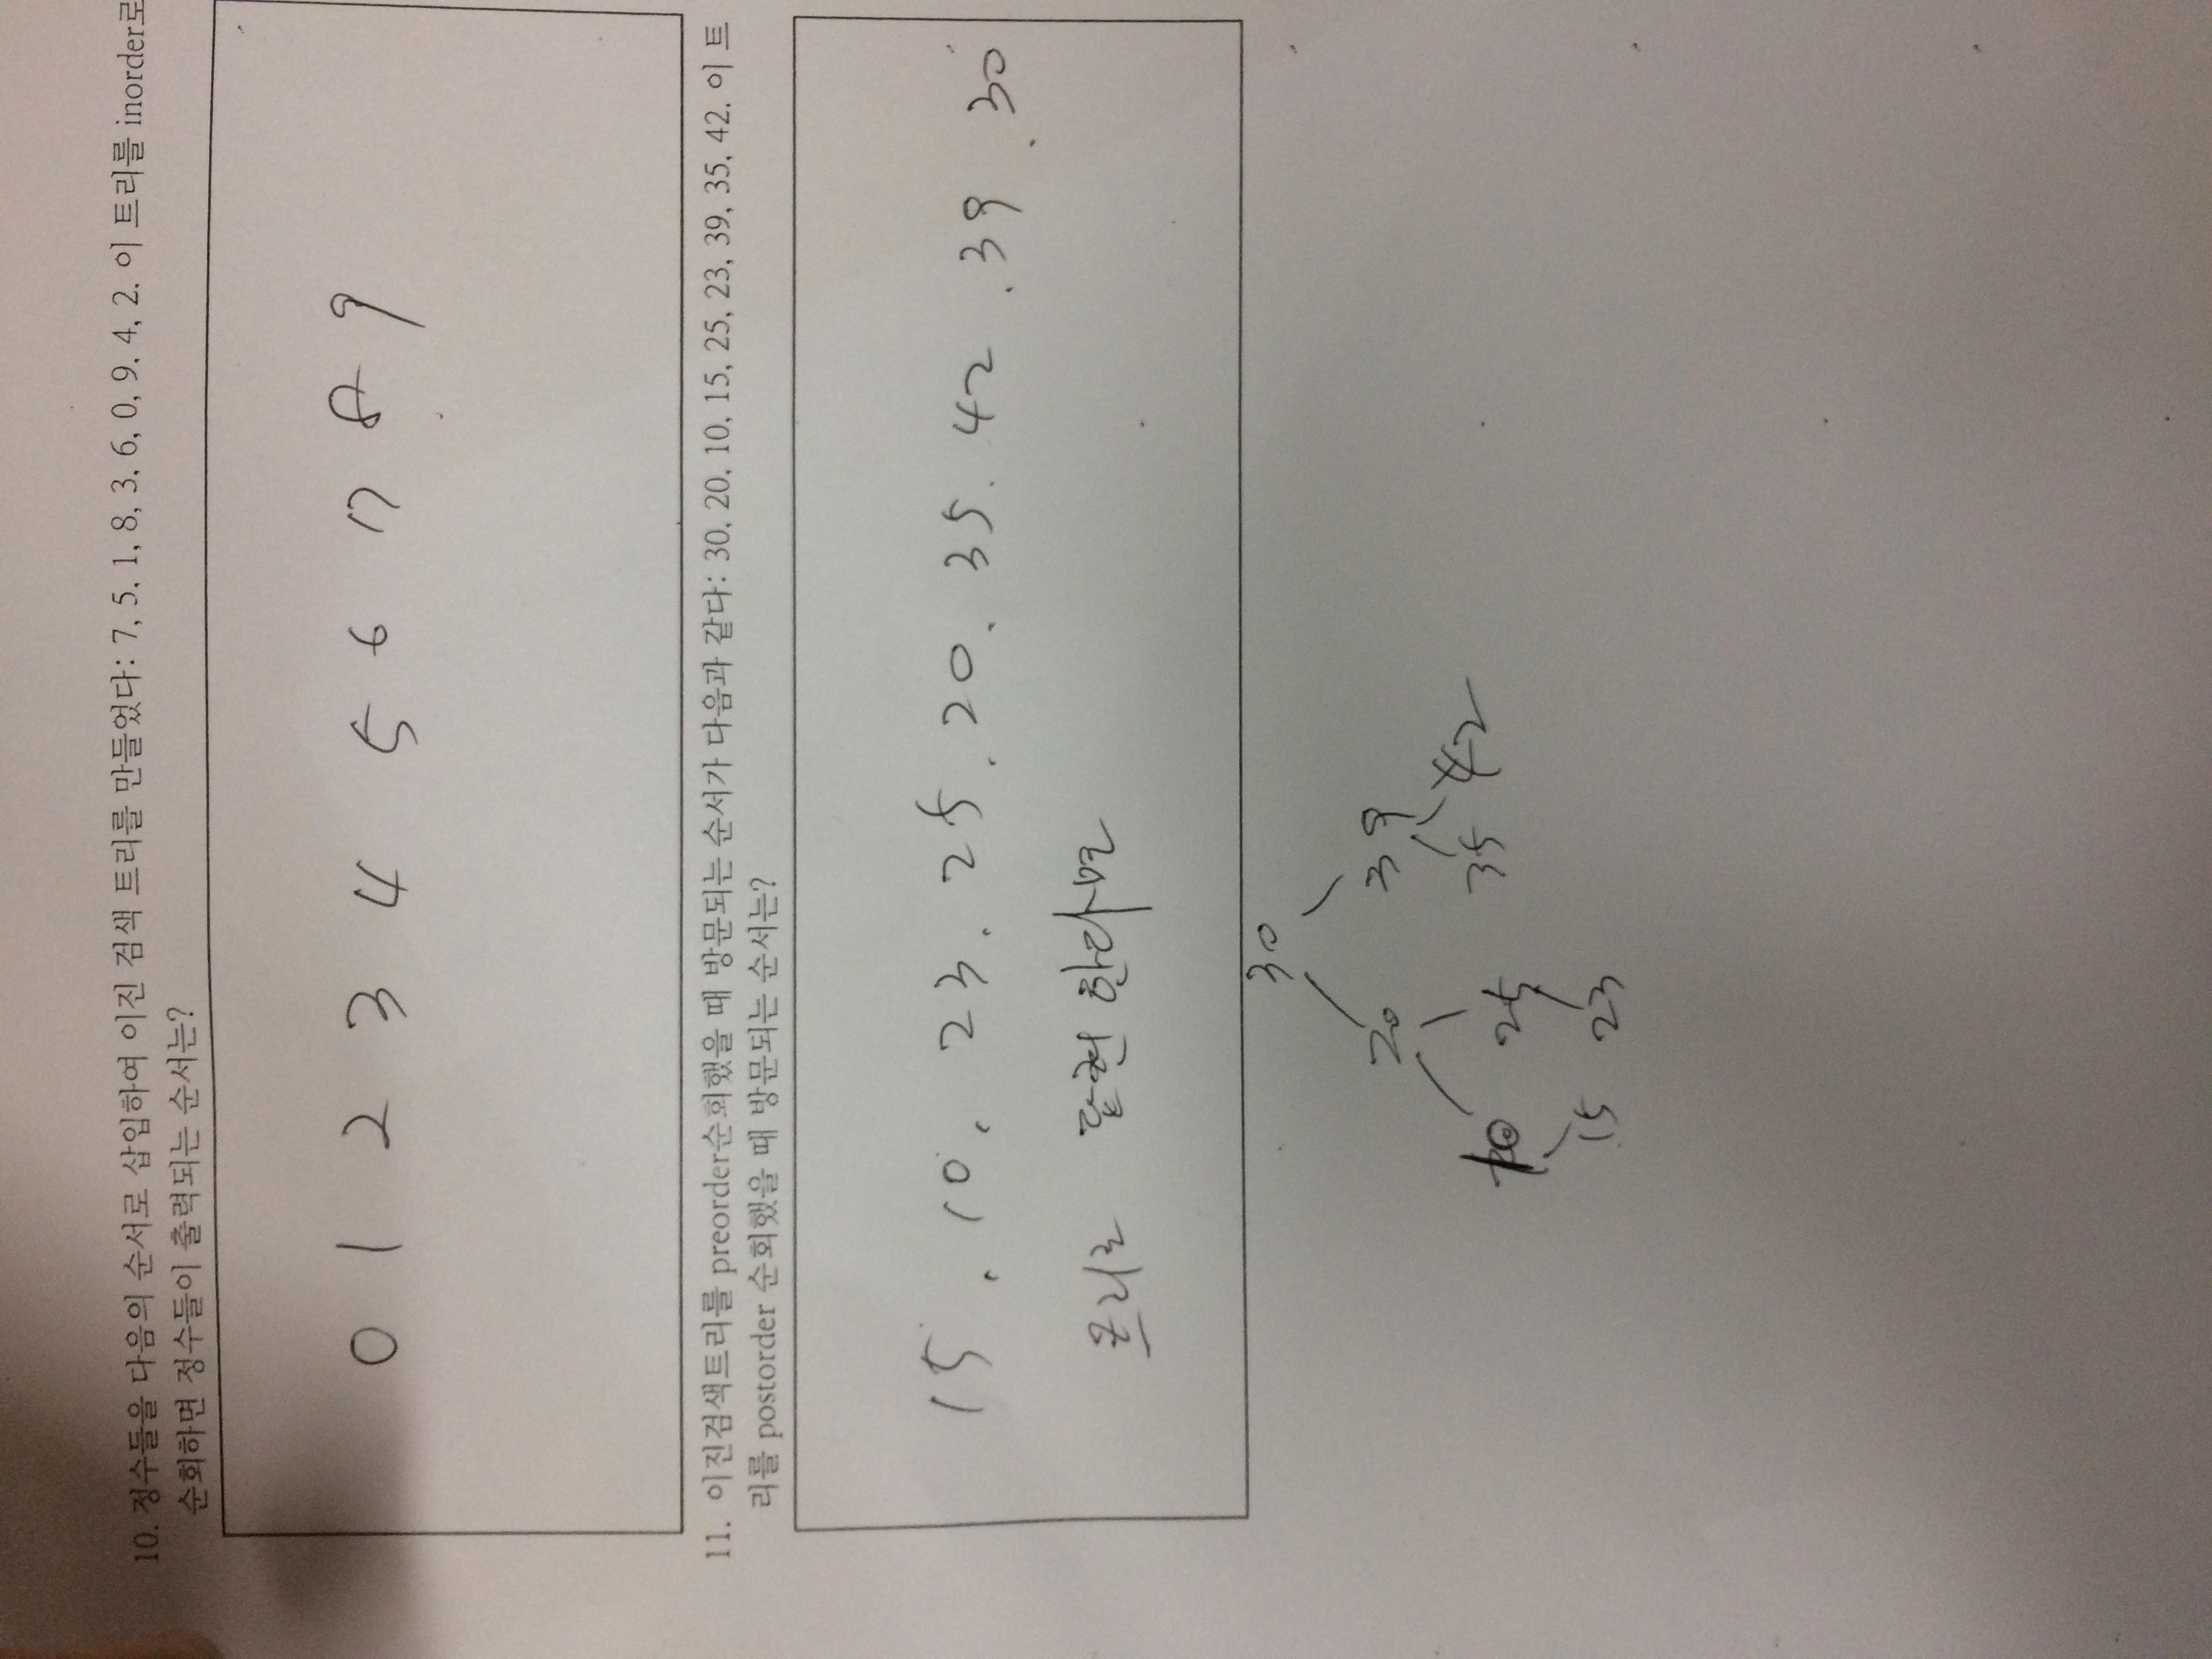 10. 정수들을 다음의 순서로 삽입하여 이진 검색 트리를 만들었다: 7, 5, 1, 8, 3, 6, 0, 9, 4, 2. 이 트리를 inorder로
순회하면 정수들이 출력되는 순서는?
0 1 2 3 4 5 6 7 8 9
11. 이진검색트리를 preorder순회했을 때 방문되는 순서가 다음과 같다: 30, 20, 10, 15, 25, 23, 39, 35, 42. 이 트
리를 postorder 순회했을 때 방문되는 순서는?
15, 10, 23, 25, 20, 35, 42, 39, 30
트리로 표현 한다면
30
20 39
10 25 35 42
15 23